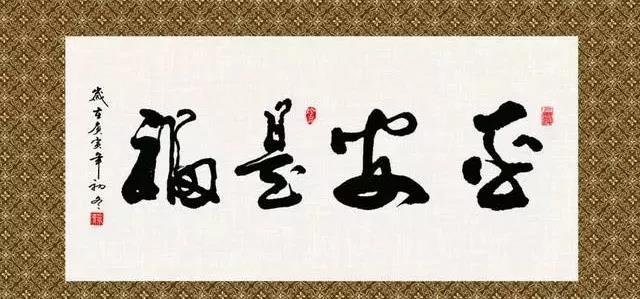 平安是福
岁在庚寅年初冬